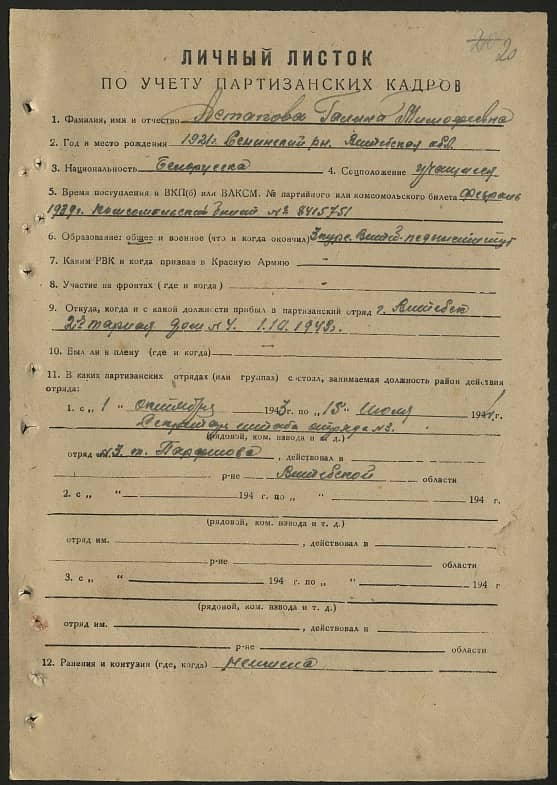 20
ЛИЧНЫЙ ЛИСТОК
ПО УЧЕТУ ПАРТИЗАНСКИХ КАДРОВ
1. Фамилия, имя и отчество Астапова Галина Тимофеевна
2. Год и место рождения 1921г. Сенинский рн. Витебская обл.
3. Национальность Белорусска 4. Соцположение учащаяся
5. Время поступления в ВКП(б) или ВЛКСМ. № партийного или комсомольского билета Февраль
1939г. Комсомольский билет № 8415751
6. Образование: общее и военное (что и когда окончил) 3 курс. Витеб. пединститут
7. Каким РВК и когда призван в Красную Армию -
8. Участие на фронтах (где и когда) -
9. Откуда, когда и с какой должности прибыл в партизанский отряд г. Витебск
дом №4. 1.10.1943г.
10. Был ли в плену (где и когда)
11. В каких партизанских отрядах (или группах) состоял, занимаемая должность район действия
отряда:
1. с „ 1 “ октября 1943 г. по „ 15 “ июля 1944 г.
штаба отряда №3.
(рядовой, ком. взвода и т. д.)
отряд №3 , действовал в
р-не Витебской области
2. с „ “ 194 г. по „ “ 194 г.
(рядовой, ком. взвода и т. д.)
отряд им. , действовал в
р-не области
3. с „ “ 194 г. по „ “ 194 г
(рядовой, ком. взвода и т. д.)
отряд им. , действовал в
р-не области
12. Ранения и контузии (где, когда) не имела